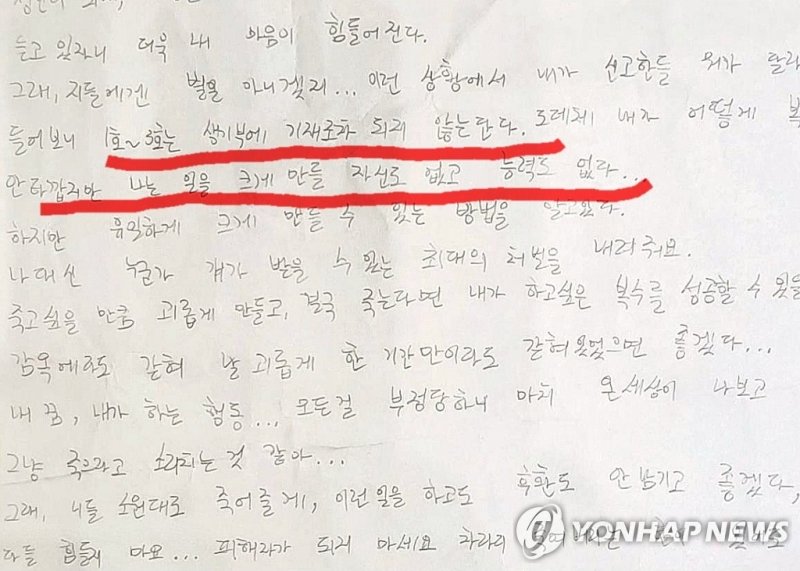 힘들어진다.
듣고 있자니 더욱 내 마음이
그래, 지들에겐 별일 아니겠지... 이런 상황에서 내가 신고한들 뭐가 달라
들어보니 1호~3호는 생기부에 기재조차 되지 않는단다. 도데체 내가 어떻게 복
안타깝지만 나는 일을 크게 만들 자신도 없고 능력도 없다...
하지만 유일하게 크게 만들 수 있는 방법을 알고있다.
나 대신 누군가 걔가 받을 수 있는 최대의 처벌을 내려줘요.
죽고싶을 만큼 괴롭게 만들고, 결국 죽는다면 내가 하고싶은 복수를 성공할 수 있을
감옥에라도 갇혀 날 괴롭게 한 기간만이라도 갇혀있었으면 좋겠다...
내 꿈, 내가 하는 행동... 모든걸 부정당하니 마치 온세상이 나보고
그냥 죽으라고 소리치는 것 같아...
그래, 니들 소원대로 죽어줄게, 이런일을 하고도 후환도 안 남기고 좋겠다,
다들 힘들지 마요... 피해자가 되지 마세요 차라리
YONHAP NEWS